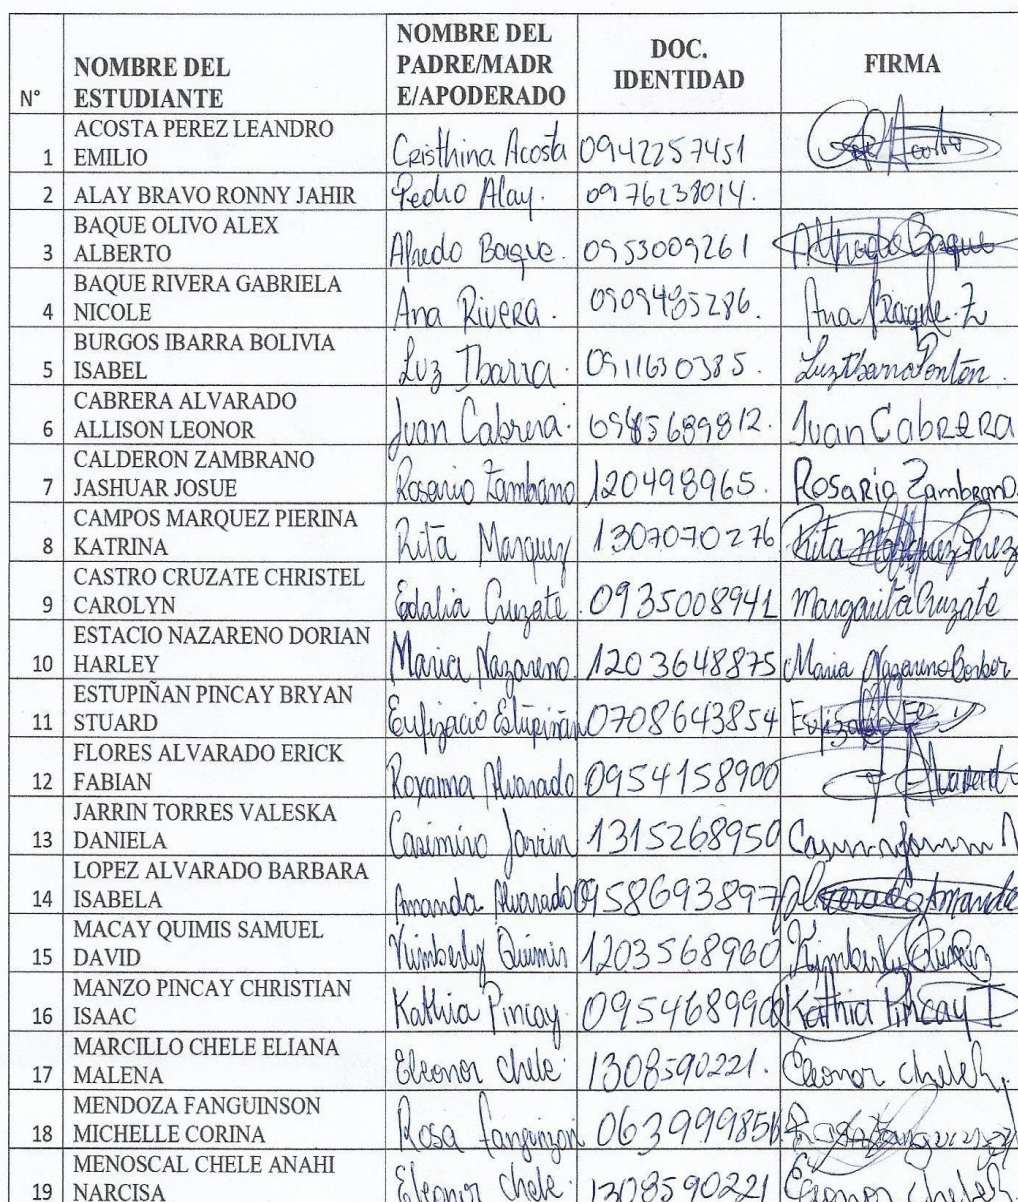 N° NOMBRE DEL ESTUDIANTE NOMBRE DEL PADRE/MADRE/APODERADO DOC. IDENTIDAD FIRMA
1 ACOSTA PEREZ LEANDRO EMILIO Cristhina Acosta 0942257451 Acosta
2 ALAY BRAVO RONNY JAHIR Pedro Alay. 0976238014.
3 BAQUE OLIVO ALEX ALBERTO Alfredo Baque. 0953009261 Baque
4 BAQUE RIVERA GABRIELA NICOLE Ana Rivera. 0909485286. Ana Baque.
5 BURGOS IBARRA BOLIVIA ISABEL Luz Ibarra. 0911630385. Luz Ibarra Pontón.
6 CABRERA ALVARADO ALLISON LEONOR Juan Cabrera. Juan Cabrera
7 CALDERON ZAMBRANO JASHUAR JOSUE Rosario Zambrano 120498965. Rosario Zambrano.
8 CAMPOS MARQUEZ PIERINA KATRINA Rita Marquez 1307070276 Rita Marquez Perez
9 CASTRO CRUZATE CHRISTEL CAROLYN Edalia Cruzate. 0935008941 Margarita Cruzate
10 ESTACIO NAZARENO DORIAN HARLEY Maria Nazareno. 1203648875 Maria Nazareno
11 ESTUPIÑAN PINCAY BRYAN STUARD Eufizacio Estupiñan 0708643854 Eufizacio
12 FLORES ALVARADO ERICK FABIAN Roxanna Alvarado 0954158900 Alvarado
13 JARRIN TORRES VALESKA DANIELA Casimiro Jarrin 1315268950
14 LOPEZ ALVARADO BARBARA ISABELA Amanda Alvarado 0958693897 Alvarado Amanda
15 MACAY QUIMIS SAMUEL DAVID Kimberly Quimis 1203568960 Kimberly Quimis
16 MANZO PINCAY CHRISTIAN ISAAC Kathia Pincay. 0954689900 Kathia Pincay I
17 MARCILLO CHELE ELIANA MALENA Eleonor chele. 1308590221. Eleonor chele
18 MENDOZA FANGUINSON MICHELLE CORINA Rosa Fanguinzon Rosa
19 MENOSCAL CHELE ANAHI NARCISA Eleonor chele. 1308590221 Eleonor chele